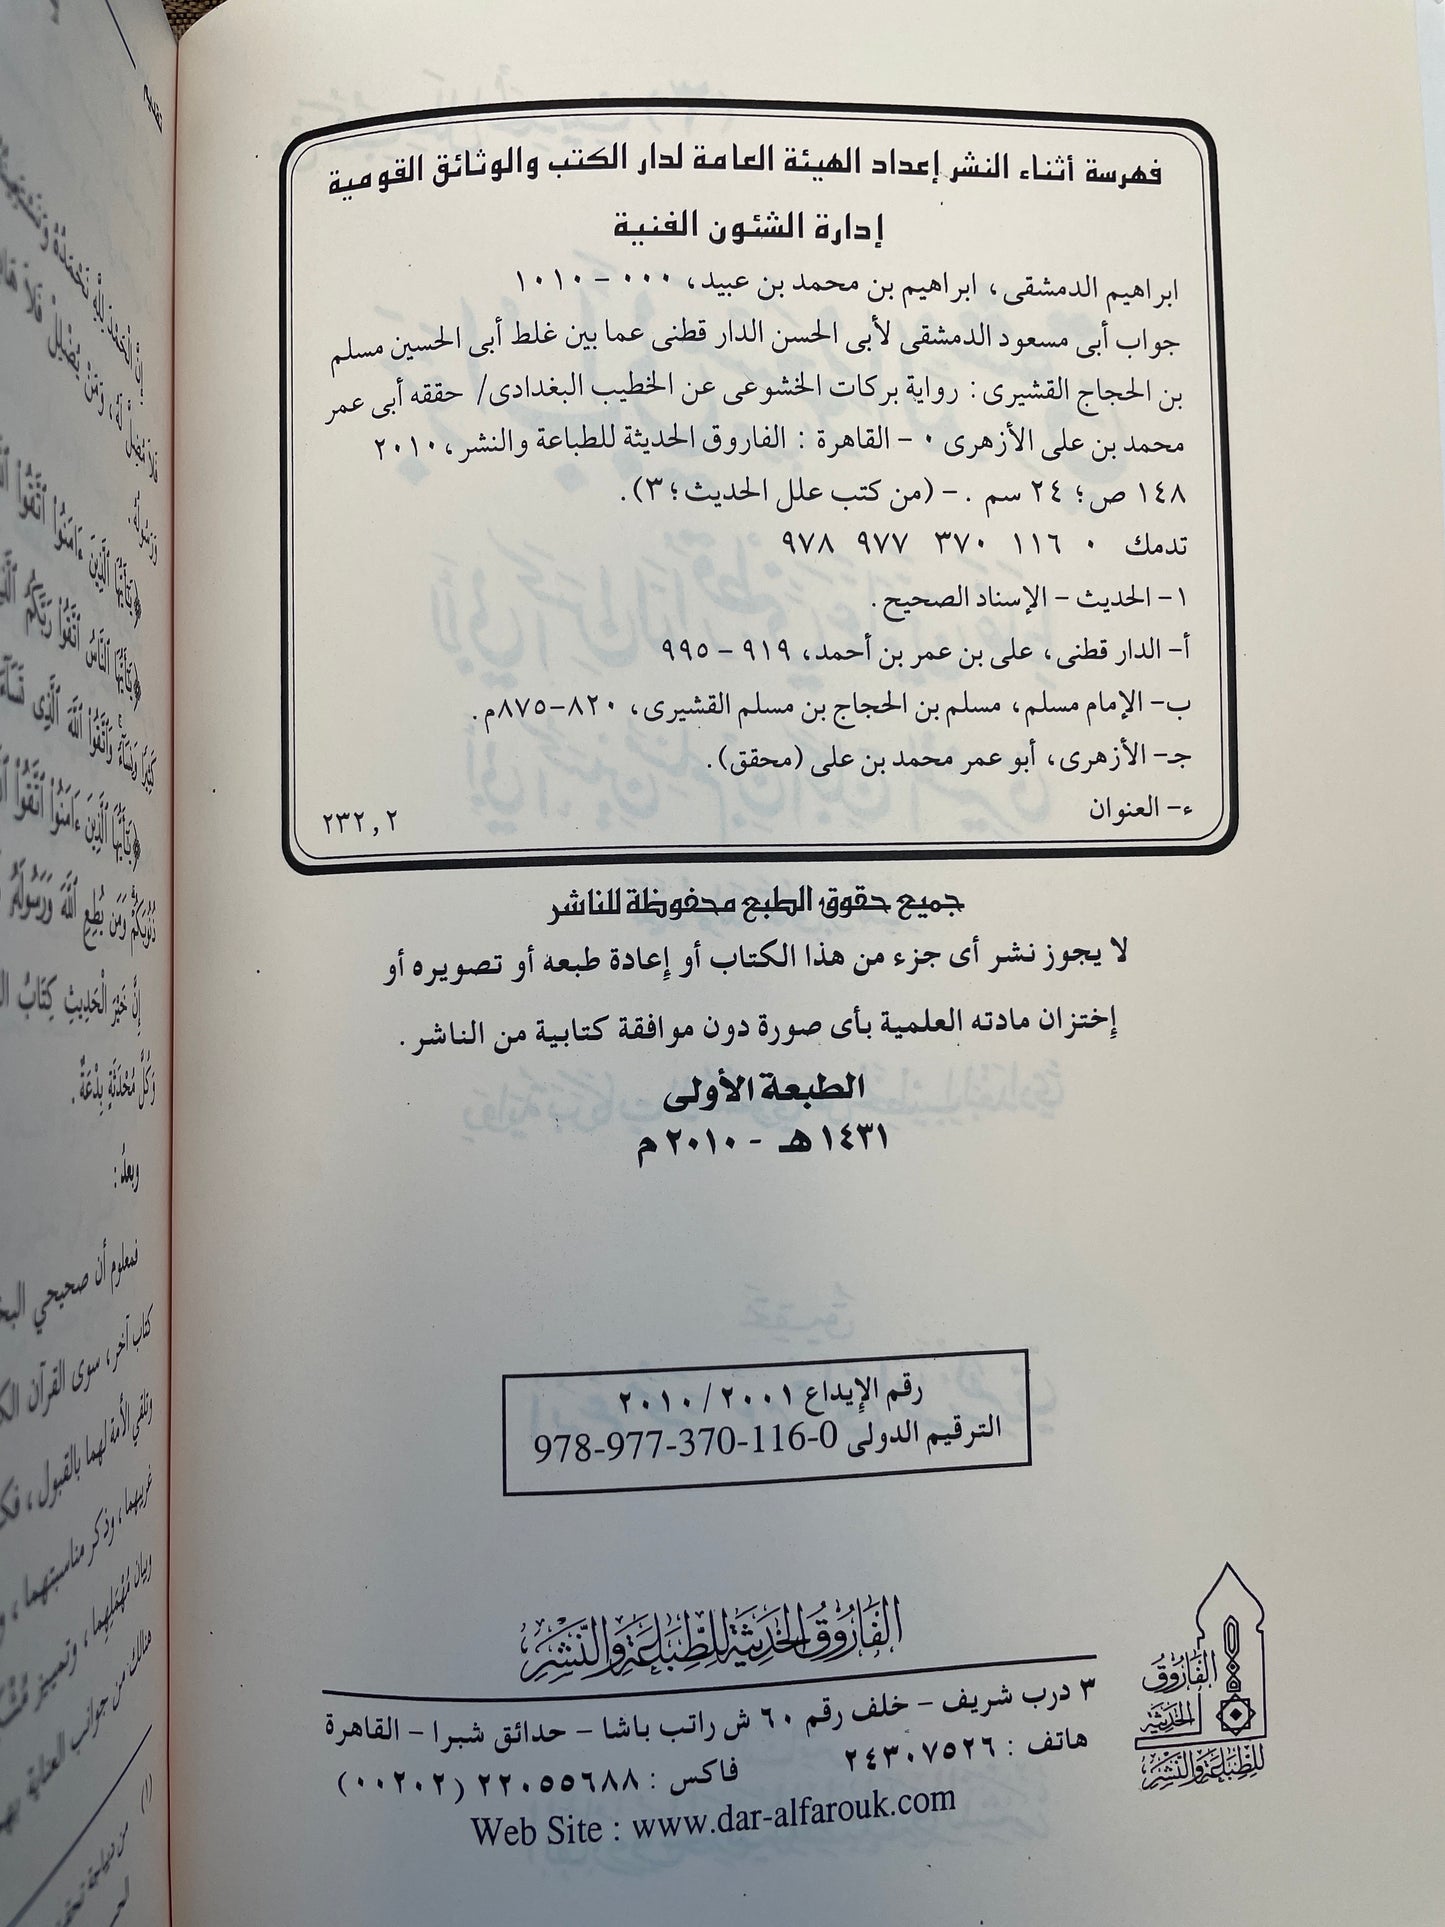 فهرسة أثناء النشر إعداد الهيئة العامة لدار الكتب والوثائق القومية
إدارة الشئون الفنية
ابراهيم الدمشقى، ابراهيم بن محمد بن عبيد، ٠٠٠ - ١٠١٠
جواب أبى مسعود الدمشقى لأبى الحسن الدار قطنى عما بين غلط أبى الحسين مسلم
بن الحجاج القشيرى : رواية بركات الخشوعى عن الخطيب البغدادى/ حققه أبى عمر
محمد بن على الأزهرى ٠ - القاهرة : الفاروق الحديثة للطباعة والنشر، ٢٠١٠
١٤٨ ص؛ ٢٤ سم . - (من كتب علل الحديث؛ ٣).
تدمك ٠ ١١٦ ٣٧٠ ٩٧٧ ٩٧٨
١- الحديث - الإسناد الصحيح.
أ- الدار قطنى، على بن عمر بن أحمد، ٩١٩ - ٩٩٥
ب- الإمام مسلم، مسلم بن الحجاج بن مسلم القشيرى، ٨٢٠-٨٧٥م.
جـ- الأزهرى، أبو عمر محمد بن على (محقق).
ء- العنوان
٢٣٢,٢
جميع حقوق الطبع محفوظة للناشر
لا يجوز نشر أى جزء من هذا الكتاب أو إعادة طبعه أو تصويره أو
إختزان مادته العلمية بأى صورة دون موافقة كتابية من الناشر .
الطبعة الأولى
١٤٣١هـ - ٢٠١٠م
رقم الإيداع ٢٠٠١ / ٢٠١٠
الترقيم الدولى 978-977-370-116-0
الفَارُوقُ الحَدِيثَة لِلطِّبَاعَةِ وَالنَّشْر
٣ درب شريف - خلف رقم ٦٠ ش راتب باشا - حدائق شبرا - القاهرة
هاتف : ٢٤٣٠٧٥٢٦ فاكس : ٢٢٠٥٥٦٨٨ (٠٠٢٠٢)
Web Site : www.dar-alfarouk.com
الفَارُوقُ
الحَدِيثَة
لِلطِّبَاعَةِ وَالنَّشْر
وَرَسُولُهُ.
وَكُلَّ مُحْدَثَةٍ بِدْعَةٌ.
وبعدُ :
فمعلوم أن صحيحي
كتاب آخر، سوى القرآن
وتلقي الأمة لهما بالقبول ،
غريبهما، وذكر مناسبتهما ،
وبيان مُهْمَلِهِما، وتمييز
هنالك من جوانب العناية
(١)